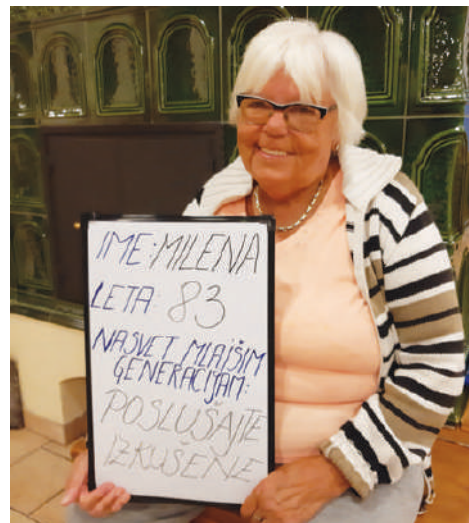 IME: MILENA
LETA: 83
NASVET MLAJŠIM
GENERACIJAM:
POSLUŠAJTE
IZKUŠENJE